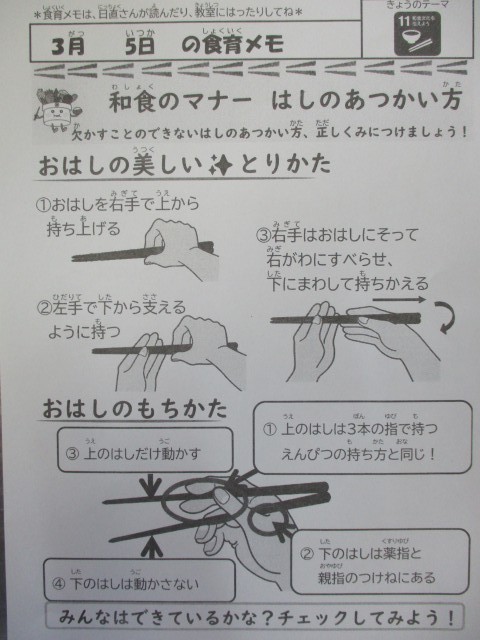 *食育メモは、日直さんが読んだり、教室にはったりしてね*
3月 5日 の食育メモ
きょうのテーマ
11 和食文化を伝えよう
和食のマナー はしのあつかい方
欠かすことのできないはしのあつかい方、正しくみにつけましょう！
おはしの美しいとりかた
①おはしを右手で上から
持ち上げる
②左手で下から支える
ように持つ
③右手はおはしにそって
右がわにすべらせ、
下にまわして持ちかえる
おはしのもちかた
① 上のはしは3本の指で持つ
えんぴつの持ち方と同じ！
③ 上のはしだけ動かす
② 下のはしは薬指と
親指のつけねにある
④ 下のはしは動かさない
みんなはできているかな？チェックしてみよう！